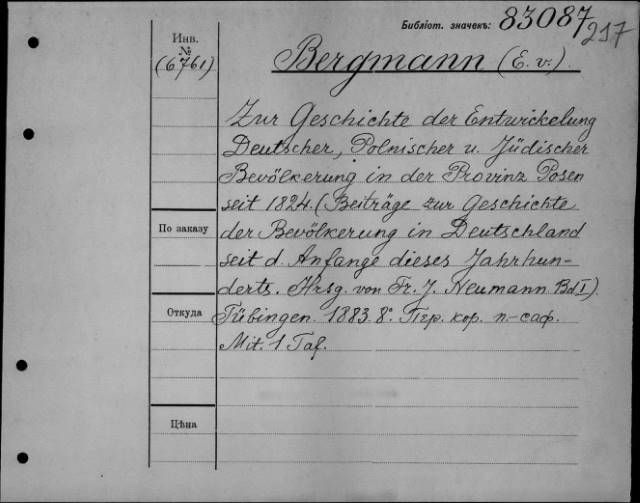 Библіот. значекъ: 83087
217
Инв.
№
(6761)
Bergmann (E. v.).
Zur Geschichte der Entwickelung
Deutscher, Polnischer u. Jüdischer
Bevölkerung in der Provinz Posen
seit 1824. (Beiträge zur Geschichte
der Bevölkerung in Deutschland
seit d. Anfange dieses Jahrhun-
derts. Hrsg. von Fr. J. Neumann Bd I).
Tübingen. 1883. 8°. Пер. кор. п.-саф.
Mit. 1 Taf.
По заказу
Откуда
Цѣна